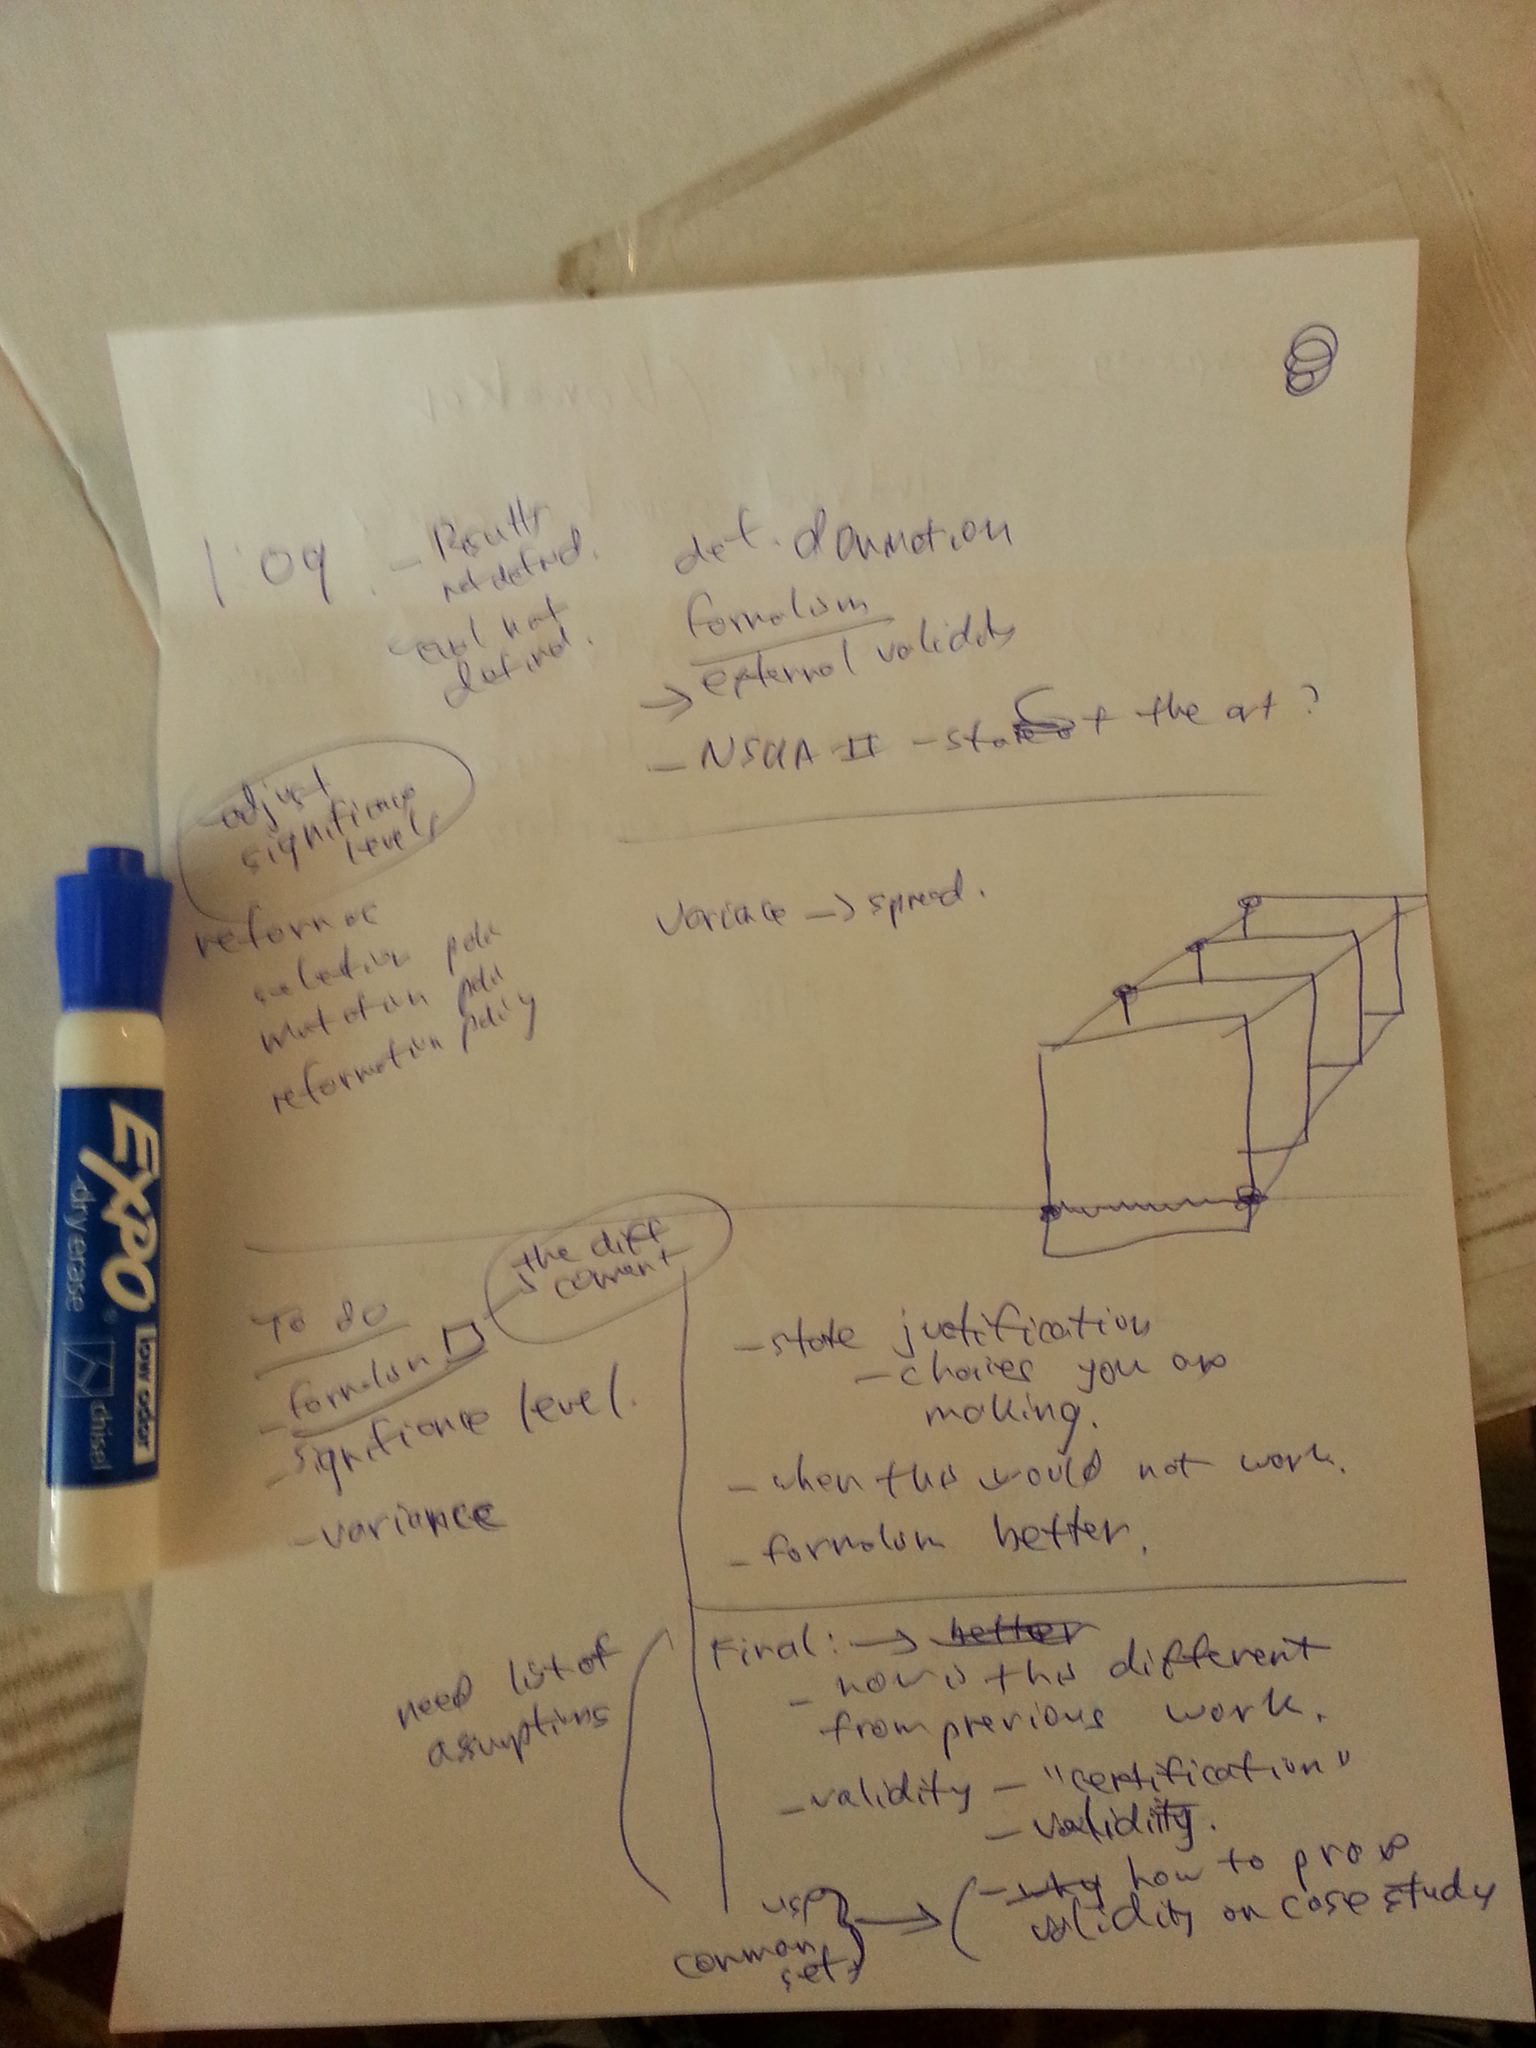 1:09
- Results
not defined.
- eval not
defined.
def. domination
formalism
→ external validity
- NSGA II - state of the art ?
adjust
significance
levels
variance → spread.
selection
mutation
reformation policy
the diff
comment
To do
- formalism
- significance level.
- variance
- state justification
- choices you are
making.
- when this would not work.
- formalism better.
need list of
assumptions
Final: → better
- how is this different
from previous work.
- validity - "certification"
- validity.
- why how to prove
validity on case study
use
common
sets
EXPO
dry erase
low odor
chisel